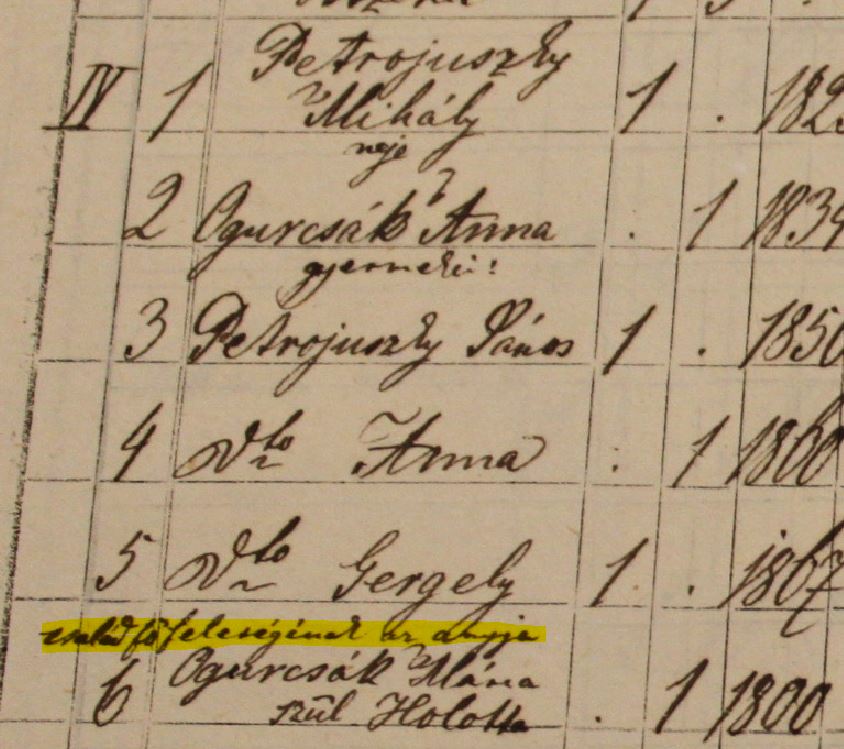 IV 1 Petrojuszky
Mihály 1 . 182
neje
2 Ogurcsák Anna . 1 1834
gyermekei:
3 Petrojuszky János 1 . 1850
4 dto Anna . 1 1860
5 dto Gergely 1 . 1867
család fő feleségének az anyja
6 Ogurcsák Mária
szül Holotta . 1 1800